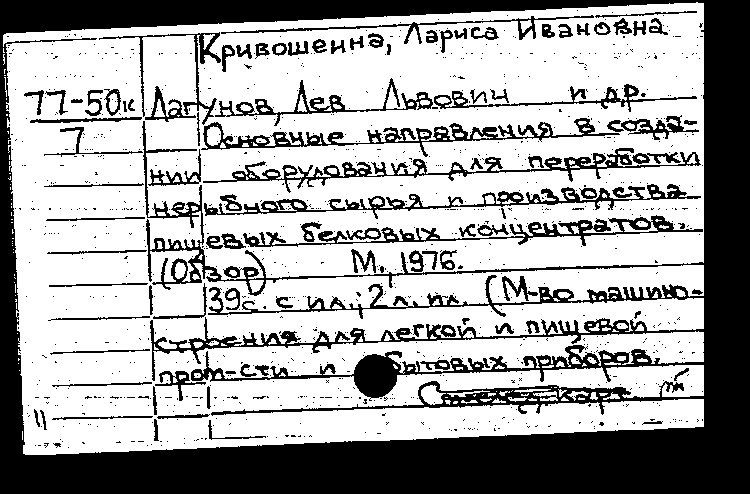 Кривошеина, Лариса Ивановна
77-50к Лагунов, Лев Львович и др.
7 Основные направления в созда-
нии оборудования для переработки
нерыбного сырья и производства
пищевых белковых концентратов.
(Обзор). М., 1976.
39с. с ил.; 2л. ил. (М-во машино-
строения для легкой и пищевой
пром-сти и бытовых приборов.
карт.
11